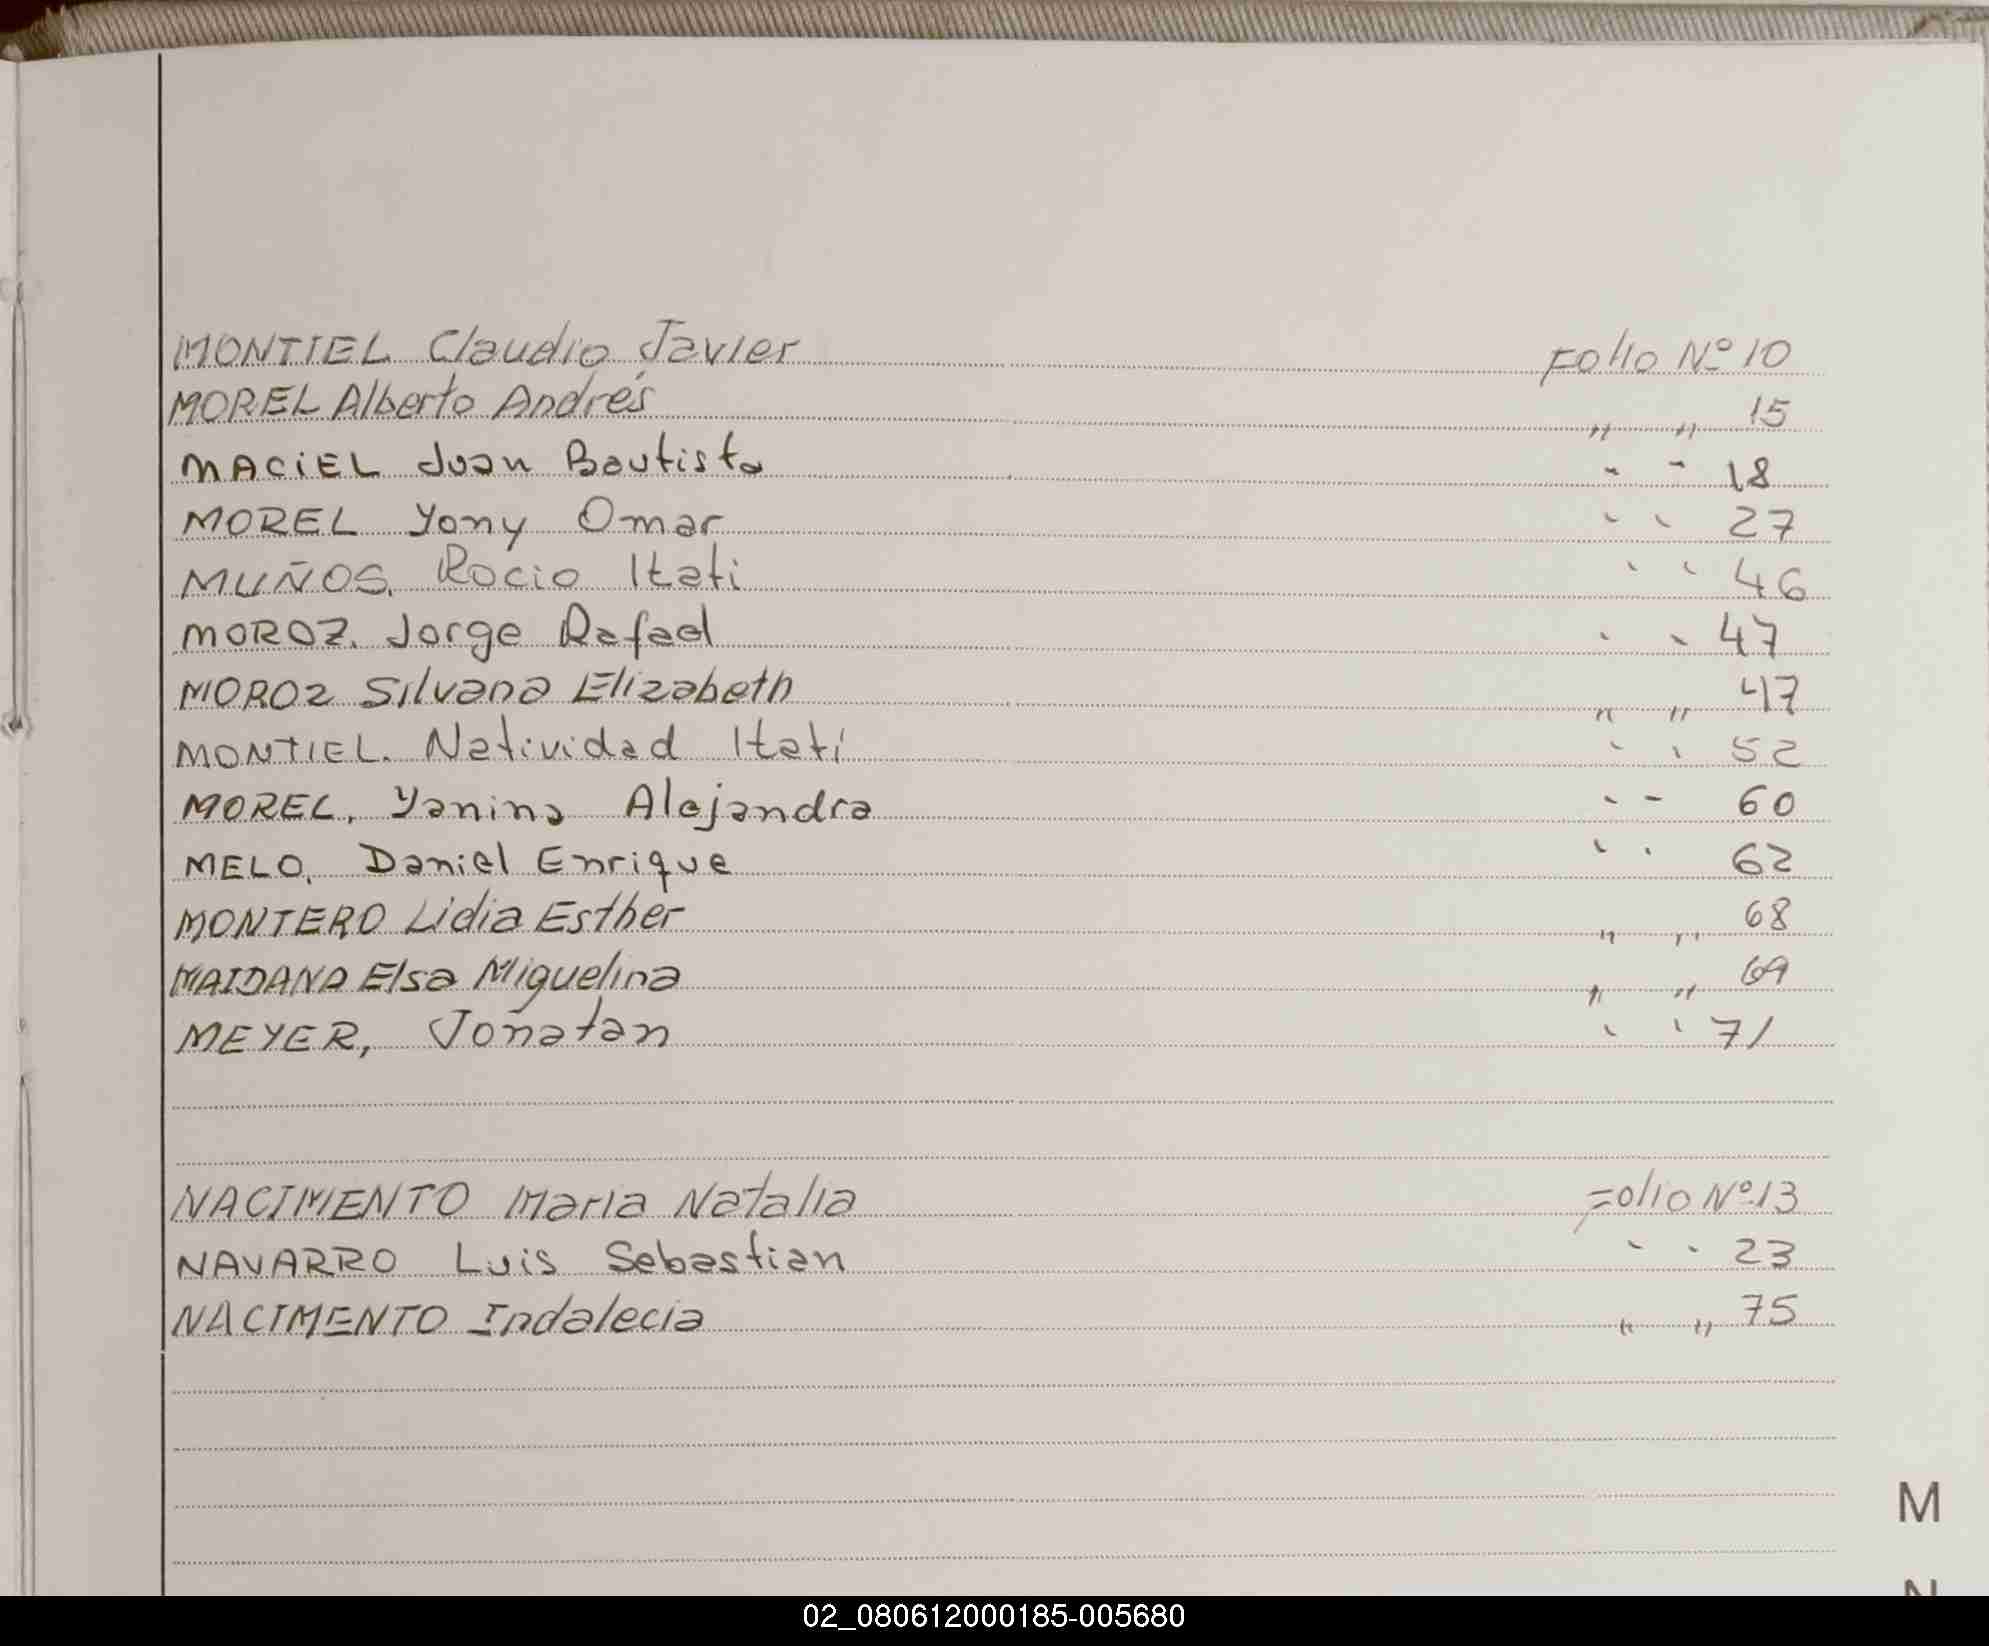 MONTIEL Claudio Javier Folio Nº 10
MOREL Alberto Andrés " " 15
MACIEL Juan Bautista " " 18
MOREL Yony Omar " " 27
MUÑOS, Rocio Itati " " 46
MOROZ, Jorge Rafael " " 47
MOROZ Silvana Elizabeth " " 47
MONTIEL. Natividad Itatí " " 52
MOREL, Yanina Alejandra " " 60
MELO, Daniel Enrique " " 62
MONTERO Lidia Esther " " 68
MAIDANA Elsa Miguelina " " 69
MEYER, Jonatan " " 71
NACIMENTO Maria Natalia Folio Nº 13
NAVARRO Luis Sebastian " " 23
NACIMENTO Indalecia " " 75
M
N
02_080612000185-005680